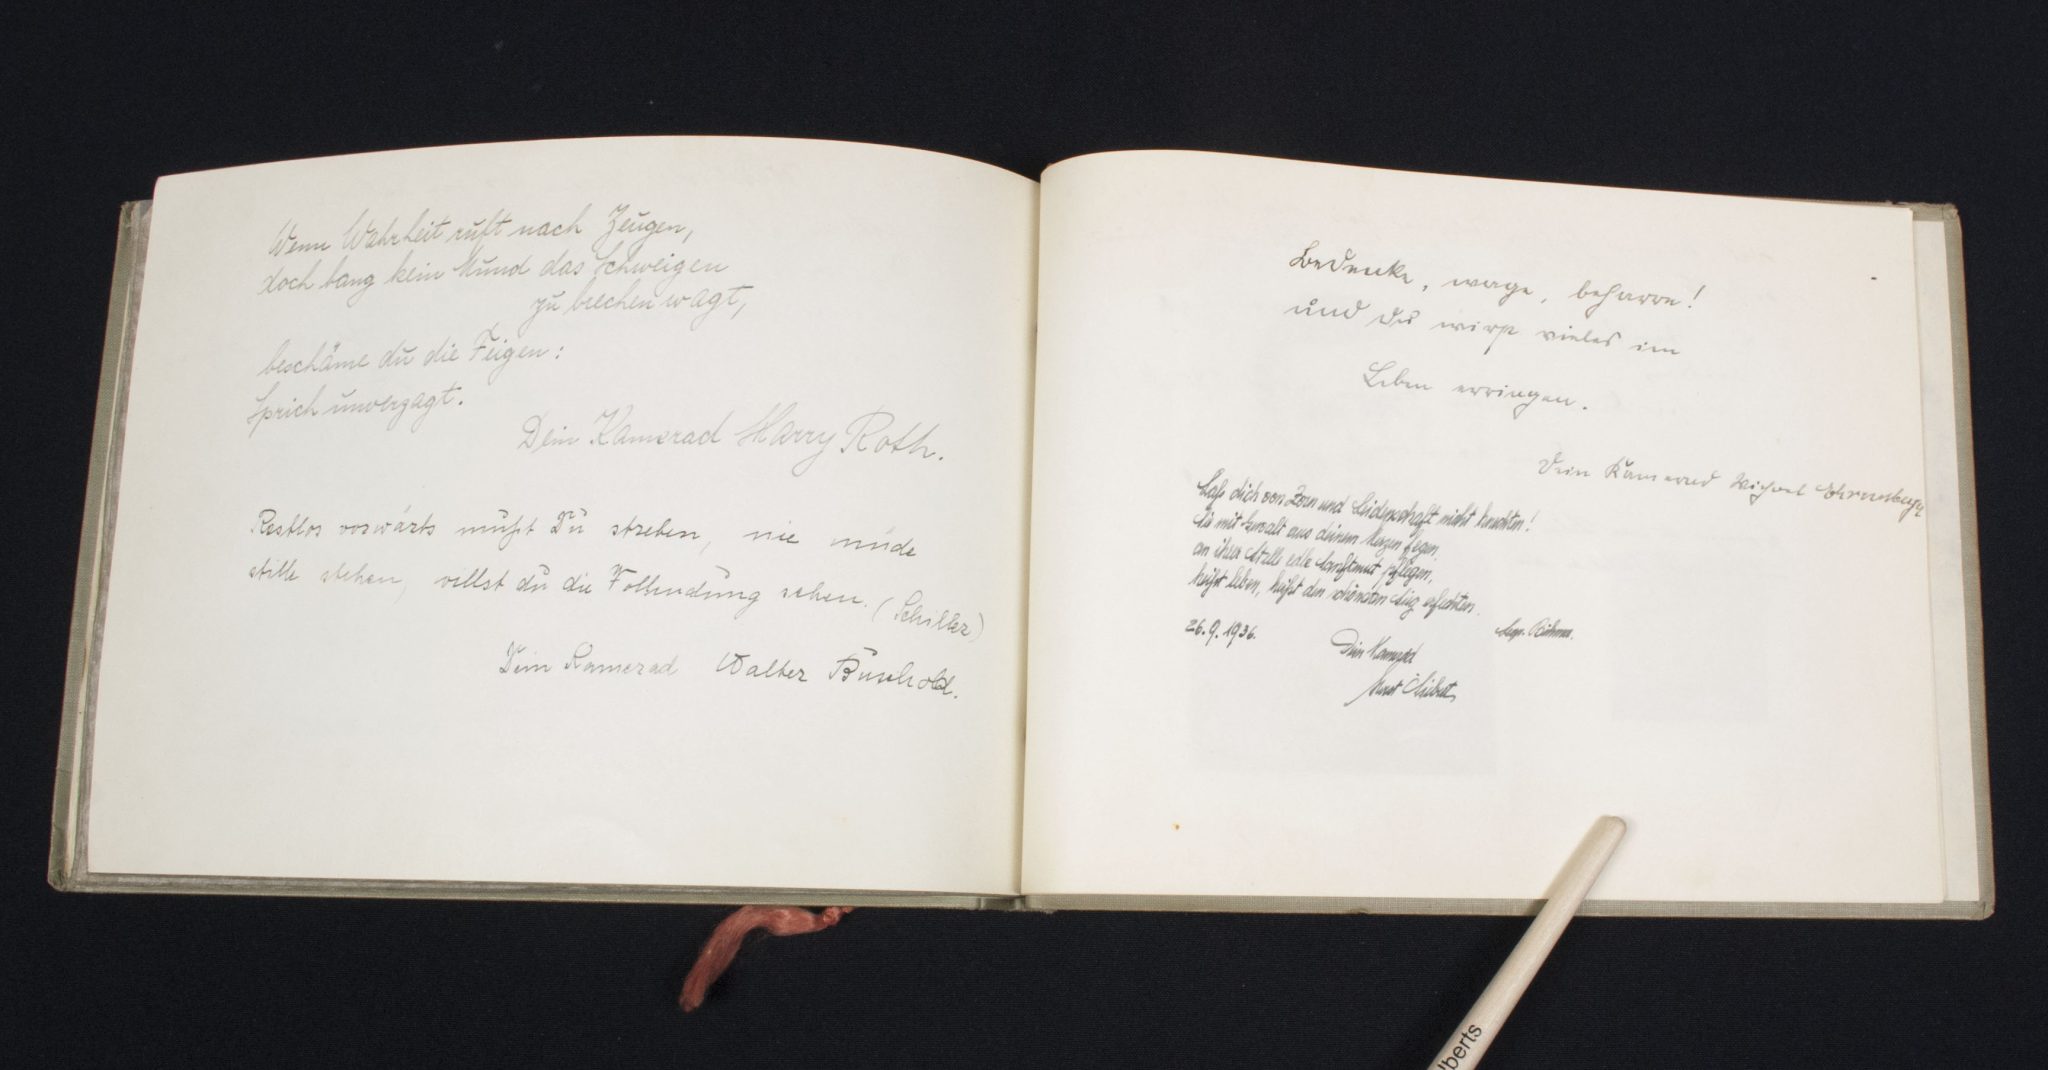 Wenn Wahrheit ruft nach Zeugen,
doch bang kein Mund das Schweigen
zu brechen wagt,
beschäme du die Feigen:
Sprich unverzagt.
Dein Kamerad Harry Roth.
Rastlos vorwärts mußt Du streben, nie müde
stille stehen, willst du die Vollendung sehen. (Schiller)
Dein Kamerad Walter Buschold.
Bedenke, wage, beharre!
und du wirst vieles im
Leben erringen.
Dein Kamerad Michael
Laß dich von Zorn und Leidenschaft nicht knechten!
Sie mit Gewalt aus deinem Herzen fegen,
an ihrer Stelle edle Sanftmut pflegen,
heißt leben, heißt den schönsten Sieg erfechten.
26.9.1936.
Dein Kamerad
Horst
lberts